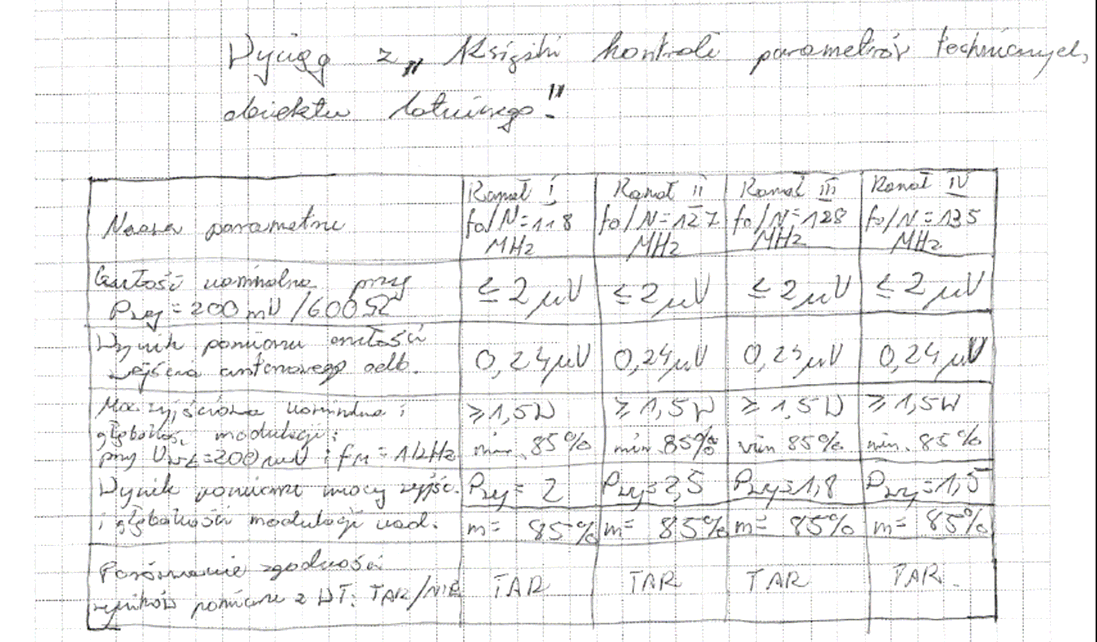 Wyciąg z „Książki kontroli parametrów technicznych,
obiektu lotniczego."
Nazwa parametru
Kanał I
fo/N=118
MHz
Kanał II
fo/N=127
MHz
Kanał III
fo/N=128
MHz
Kanał IV
fo/N=135
MHz
Wartość nominalna przy
Pwy=200mV/600Ω
≤2μV
≤2μV
≤2μV
≤2μV
Wynik pomiaru czułości
wejścia antenowego odb.
0,24μV
0,24μV
0,25μV
0,24μV
Moc wyjściowa nominalna i
głębokość modulacji:
przy =200mV i fM=1kHz
≥1,5W
min. 85%
≥1,5W
min. 85%
≥1,5W
min 85%
≥1,5W
min. 85%
Wynik pomiaru mocy wyjśc.
i głębokości modulacji nad.
Pwy=2
m= 85%
Pwy=2,5
m= 85%
Pwy=1,8
m= 85%
Pwy=1,5
m= 85%
Porównanie zgodności
wyników pomiaru z WT: TAK/NIE
TAK
TAK
TAK
TAK